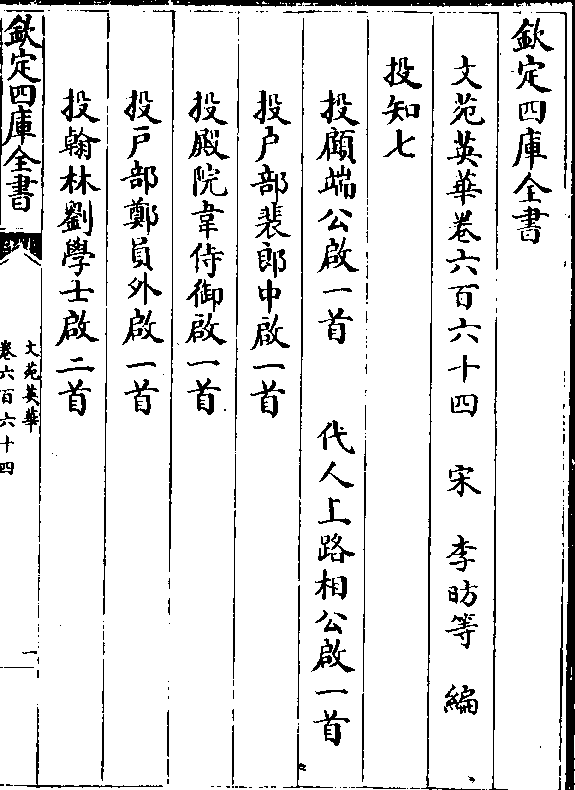 欽定四庫全書
文苑英華卷六百六十四 宋 李昉等 編
投知七
投顧端公啟一首 代人上路相公啟一首
投户部裴郎中啟一首
投殿院韋侍御啟一首
投戸部鄭員外啟一首
投翰林劉學士啟二首
欽定四庫全書
文苑英華
卷六百六十四
一